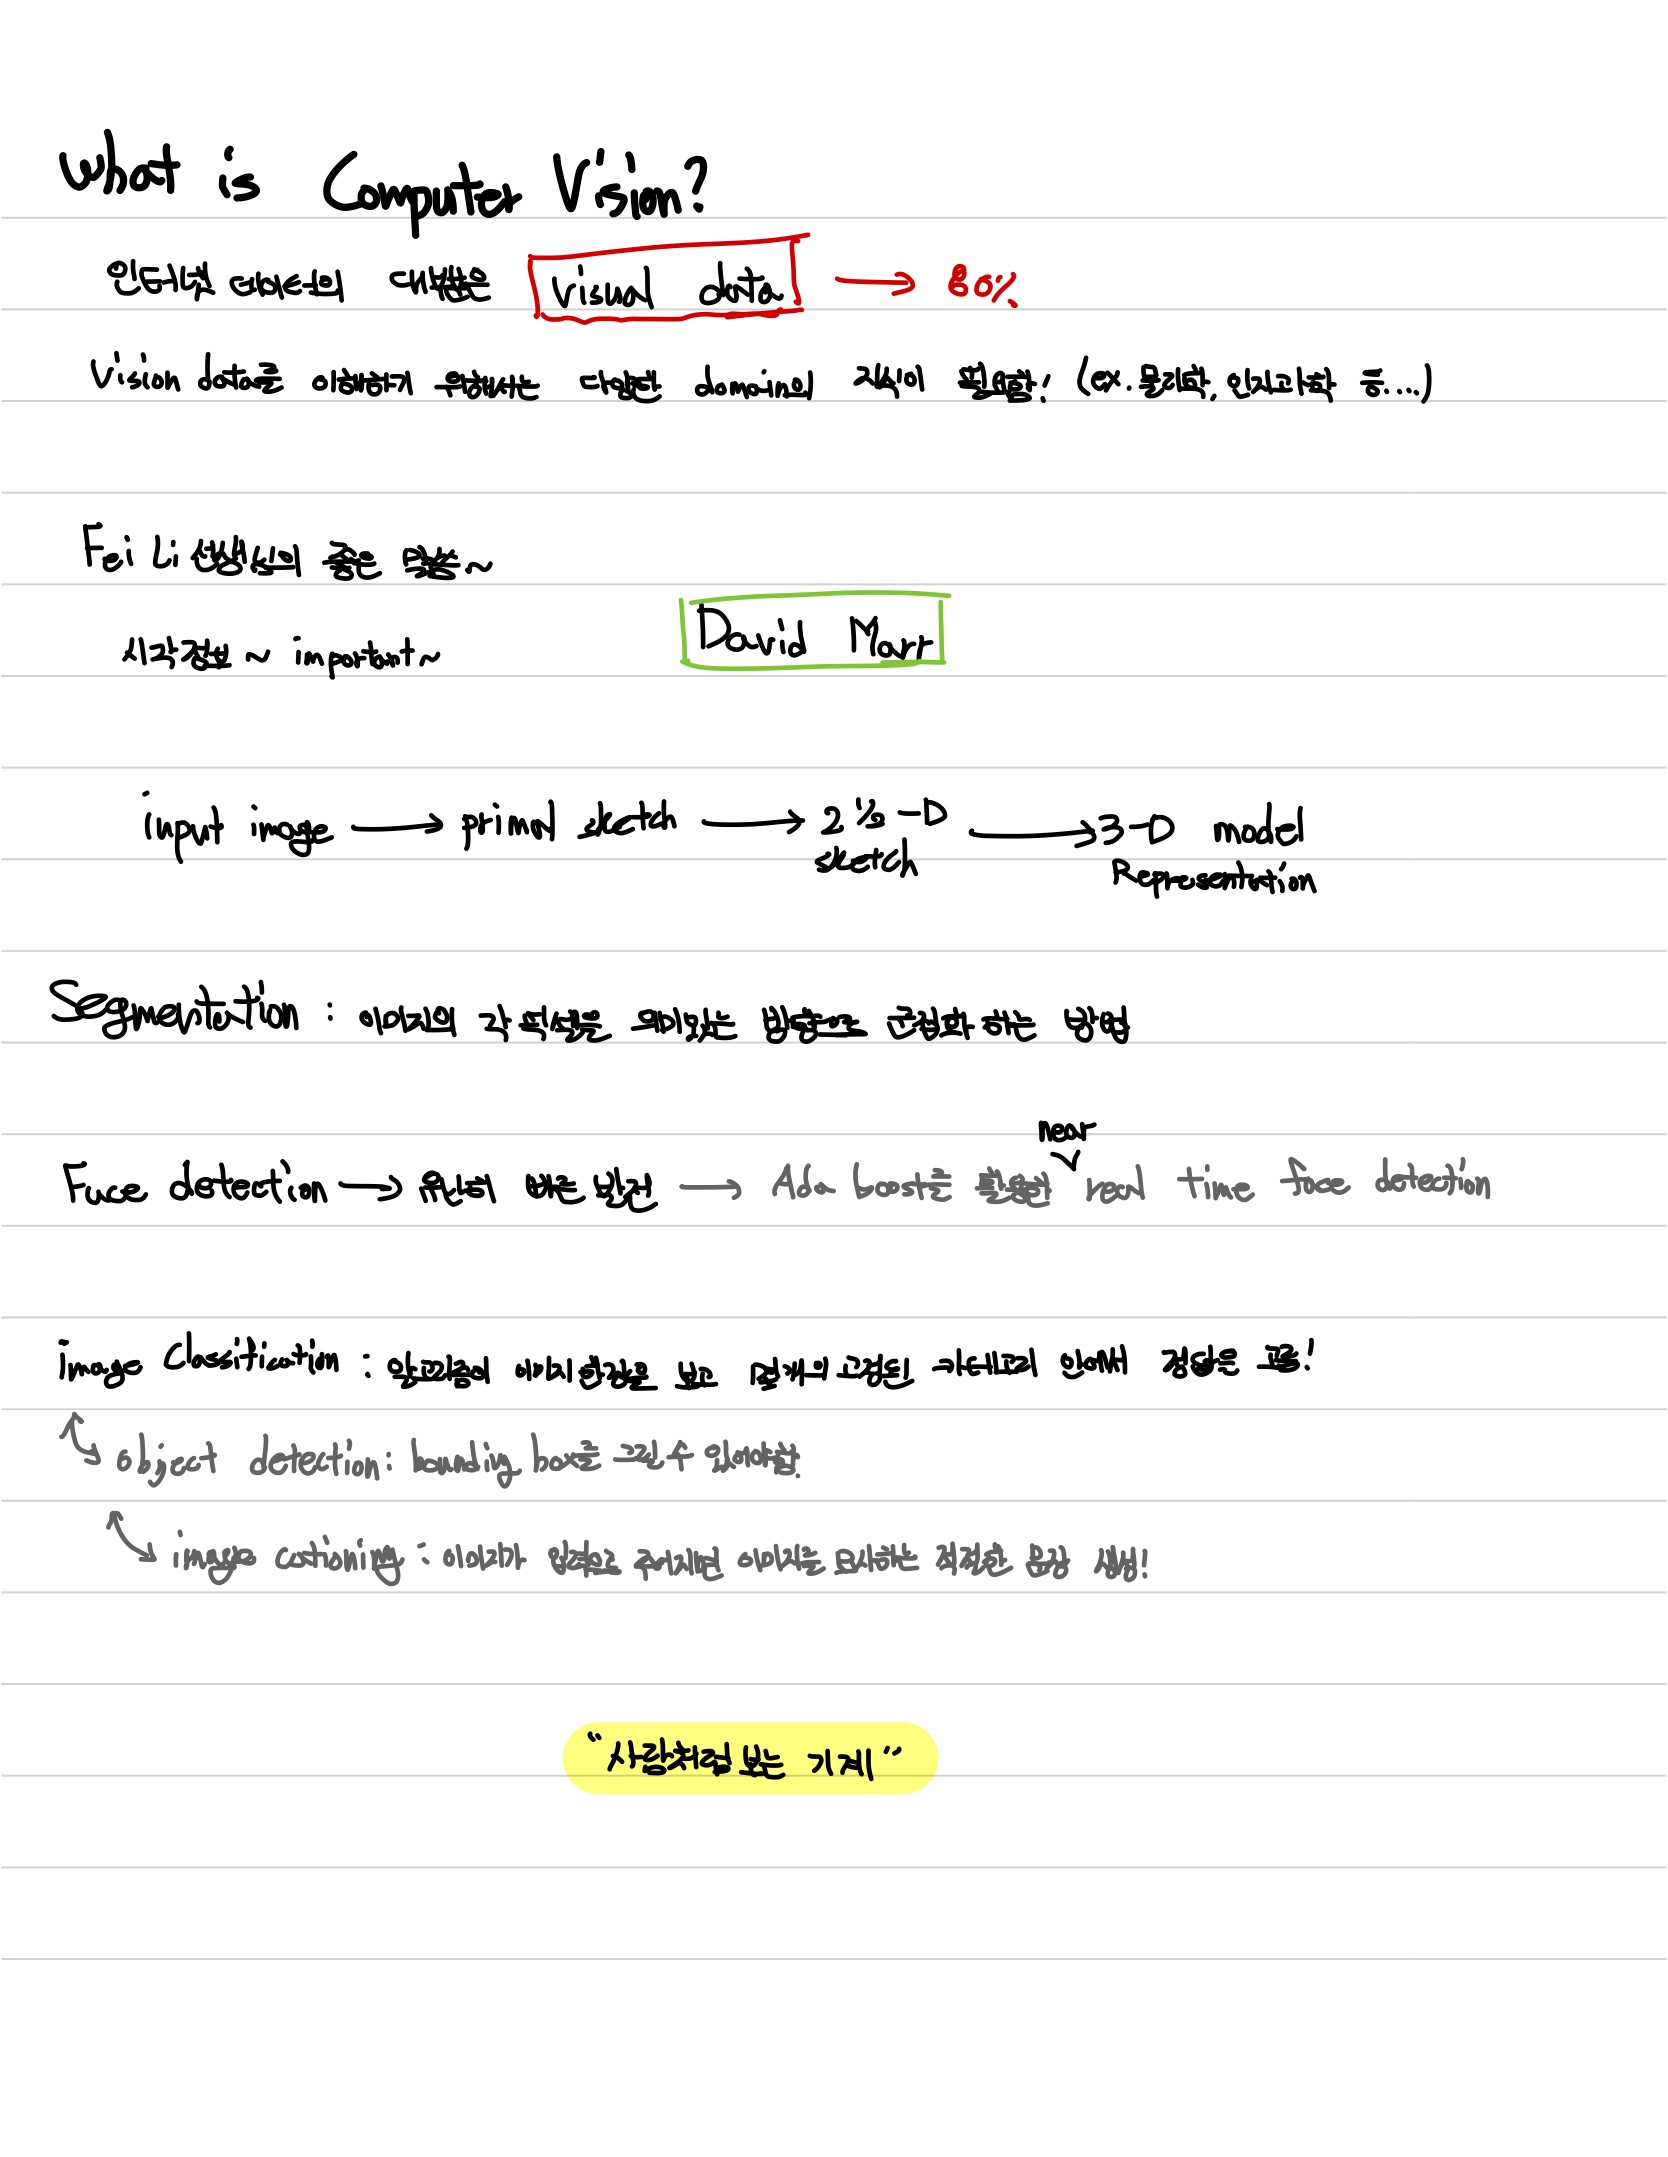 What is Computer Vision?
인터넷 데이터의 대부분은 visual data → 80%
Vision data를 이해하기 위해서는 다양한 domain의 지식이 필요함! (ex. 물리학, 인지과학 등....)
Fei Li 선생님의 좋은 말씀~
시각정보~ important~
David Marr
input image → primal sketch → 2 ½-D sketch → 3-D model Representation
Segmentation : 이미지의 각 픽셀을 의미있는 방향으로 군집화 하는 방법
near
Face detection → 유난히 빠른 발전 → Ada boost를 활용한 real time face detection
image Classification : 알고리즘이 이미지 한장을 보고 몇개의 고정된 카테고리 안에서 정답을 고름!
object detection : bounding box를 그릴 수 있어야함.
image cationing : 이미지가 입력으로 주어지면 이미지를 묘사하는 적절한 문장 생성!
"사람처럼 보는 기계"